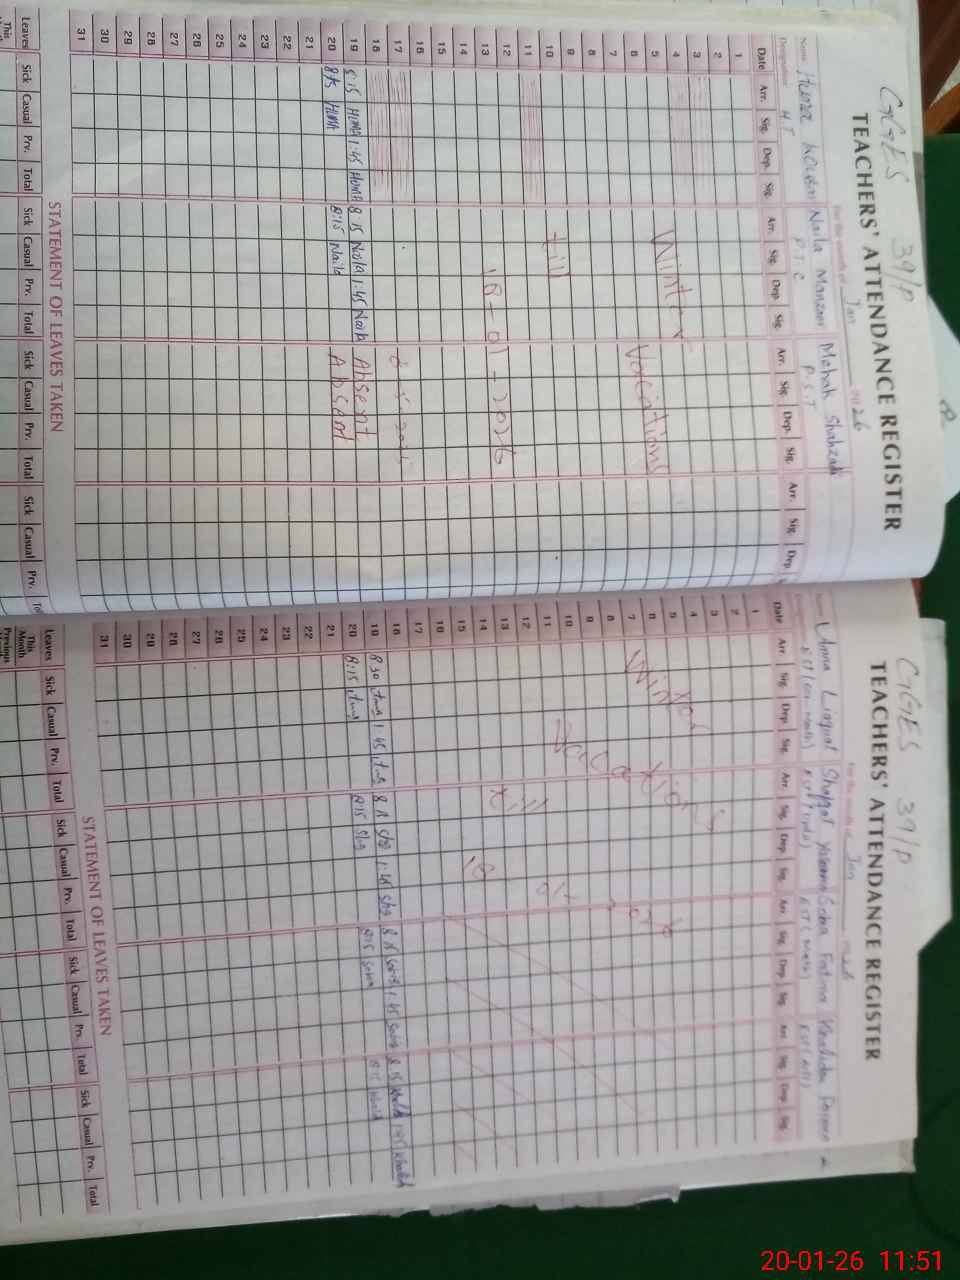 GGES 39/P
TEACHERS' ATTENDANCE REGISTER
For the month of Jan 2026
Name Huma Naila Manzoor Mehak Shahzadi
Designation H.T P.T.C P.S.T
Date Arr. Sig. Dep. Sig. Arr. Sig. Dep. Sig. Arr. Sig. Dep. Sig. Arr. Sig. Dep.
1
2
3
4
5
6
7
8
9
10
11
12
13
14
15
16
17
18
19 8:15 HUMA 1:45 HUMA 8 15 Naila 1:45 Naila Absent
20 8:15 HUMA 8:15 Naila Absent
21
22
23
24
25
26
27
28
29
30
31
Winter Vacations
till
18-01-2026
STATEMENT OF LEAVES TAKEN
Leaves Sick Casual Prv. Total Sick Casual Prv. Total Sick Casual Prv. Total Sick Casual Prv.
This
GGES 39/P
TEACHERS' ATTENDANCE REGISTER
For the month of Jan
Name Liaqat Shafqat Fatima
Date Arr. Sig. Dep. Sig. Arr. Sig. Dep. Sig. Arr. Sig. Dep. Sig. Arr. Sig. Dep. Sig.
1
2
3
4
5
6
7
8
9
10
11
12
13
14
15
16
17
18
19 8 30 1:45 1:45 Sha 1:45 Saba
20 8:15 8:15 Sha 8:15 Saba 8:15
21
22
23
24
25
26
27
28
29
30
31
Winter
Vacations
till
18 01
STATEMENT OF LEAVES TAKEN
Leaves Sick Casual Prv. Total Sick Casual Prv. Total Sick Casual Prv. Total Sick Casual Prv. Total
This Month
Previous
20-01-26 11:51